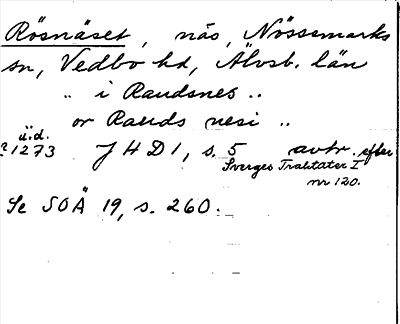 Rösnäset, näs, Nössemarks
sn, Vedbo hd, Älvsb. län
.. i Raudsnes ..
or Rauds nesi ..
u.d.
?1273 JHD 1, s. 5 avtr. efter
Sverges Traktater I
nr 120.
Se SOÄ 19, s. 260.